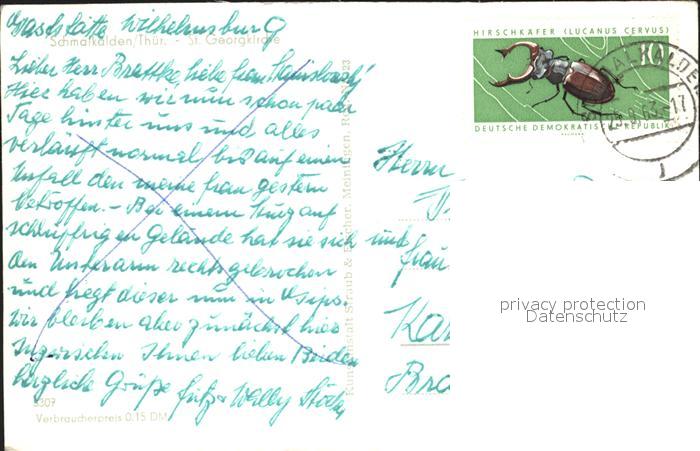 Gaststätte Wilhelmsburg
Schmalkalden/Thür. - St. Georgkirche
Lieber Herr Brattke, liebe Frau
Hier haben wir nun schon paar
Tage hinter uns und alles
verläuft normal bis auf einen
Unfall den meine Frau gestern
betroffen. - Bei einem Sturz auf
schlüpfrigen Gelände hat sie sich
den Unterarm rechts gebrochen
und liegt dieser nun in Gips.
Wir bleiben aber zunächst hier
Inzwischen Ihnen lieben Beiden
herzliche Grüße Fritz + Wally
5307
Verbraucherpreis 0.15 DM
Kunstanstalt Straub & Fischer, Meiningen,
HIRSCHKÄFER (LUCANUS CERVUS)
10
DEUTSCHE DEMOKRATISCHE REPUBLIK
Herrn
und
Frau
Kar
Bra
privacy protection
Datenschutz